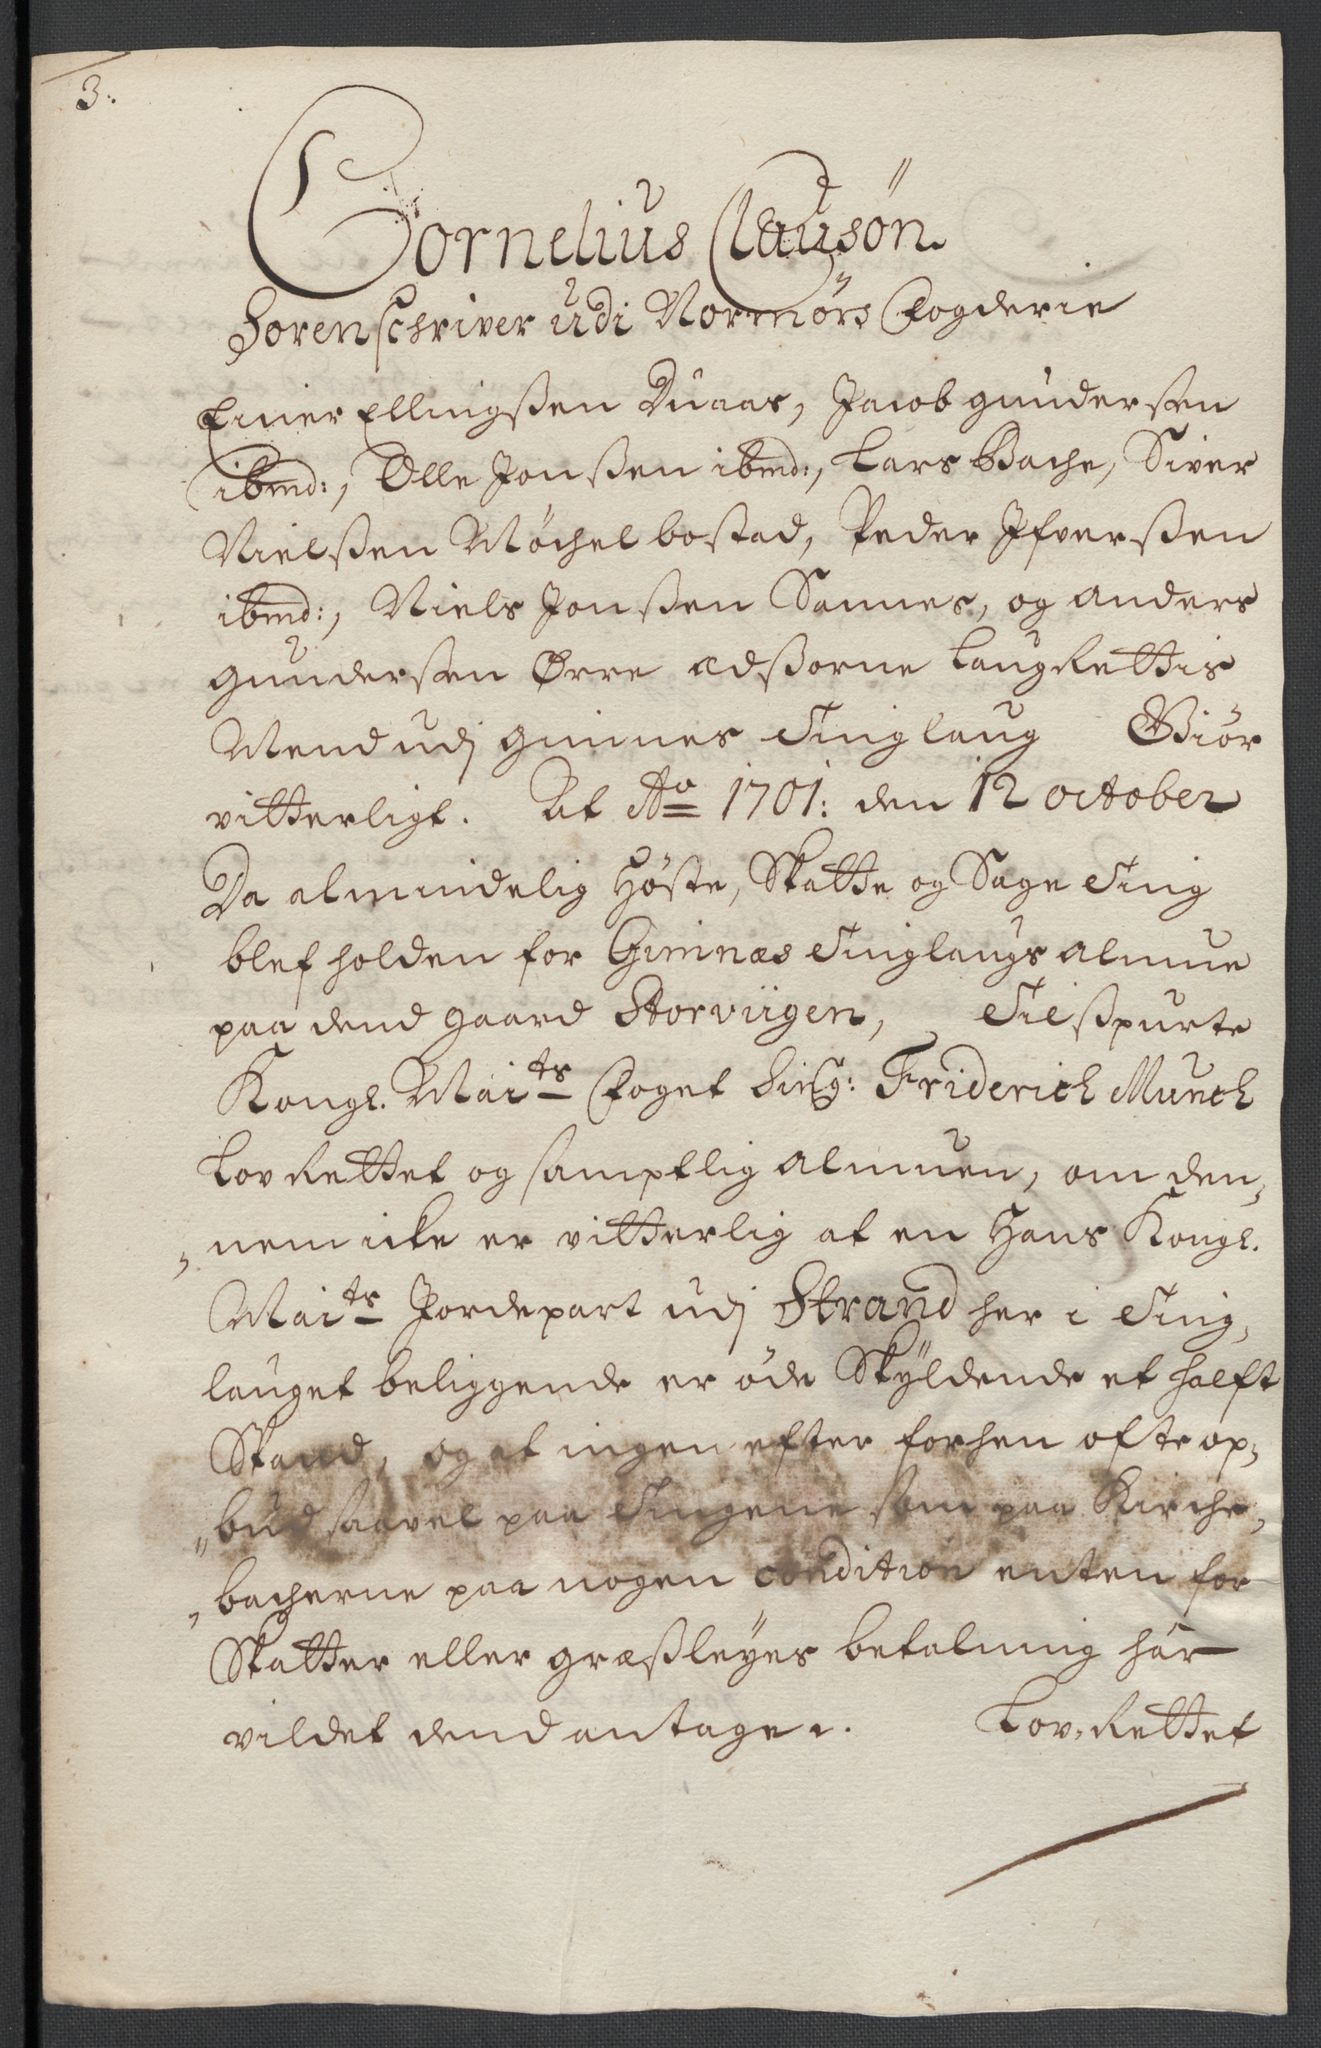 3:
Cornelius Clausøn.
Sorenschriver udi Normørs Fogderie
Einer Ellingßen Duaas, Jacob Gundersen
ibmd:, Olle Jonßen ibmd:, Lars Bache, Siver
Nielßen Møchelbostad, Peder Ifverßen
ibmd:, Niels Jonßen Sannes, og Anders
Gundersen Ørre Edsorne LaugRettis
Mend udj Gimnes Tinglaug Giør
vitterligt. At Ao 1701: den 12 October
Da almindelig Høste, Skatte og Sage Ting
blef holden for Gimnæs Tinglaugs Almue
paa dend gaard Storviigen, Tilßpurte
Kongl. Maits Foget Sig: Friderich Munch
LovRettet og samptlig Almuen, om den,,
,,nem icke er vitterlig at en Hans Kongl.
Maits Jordepart udj Strand her i Ting,,
lauget beliggende er øde Skyldende et halft
Spand, og at ingen efter forhen ofte op,,
,,bud saavel paa Tingene som paa Kirche,,
,,bacherne paa nogen condition enten for
Skatter eller græßleyes betalning har
vildet dend antage. LovRettet